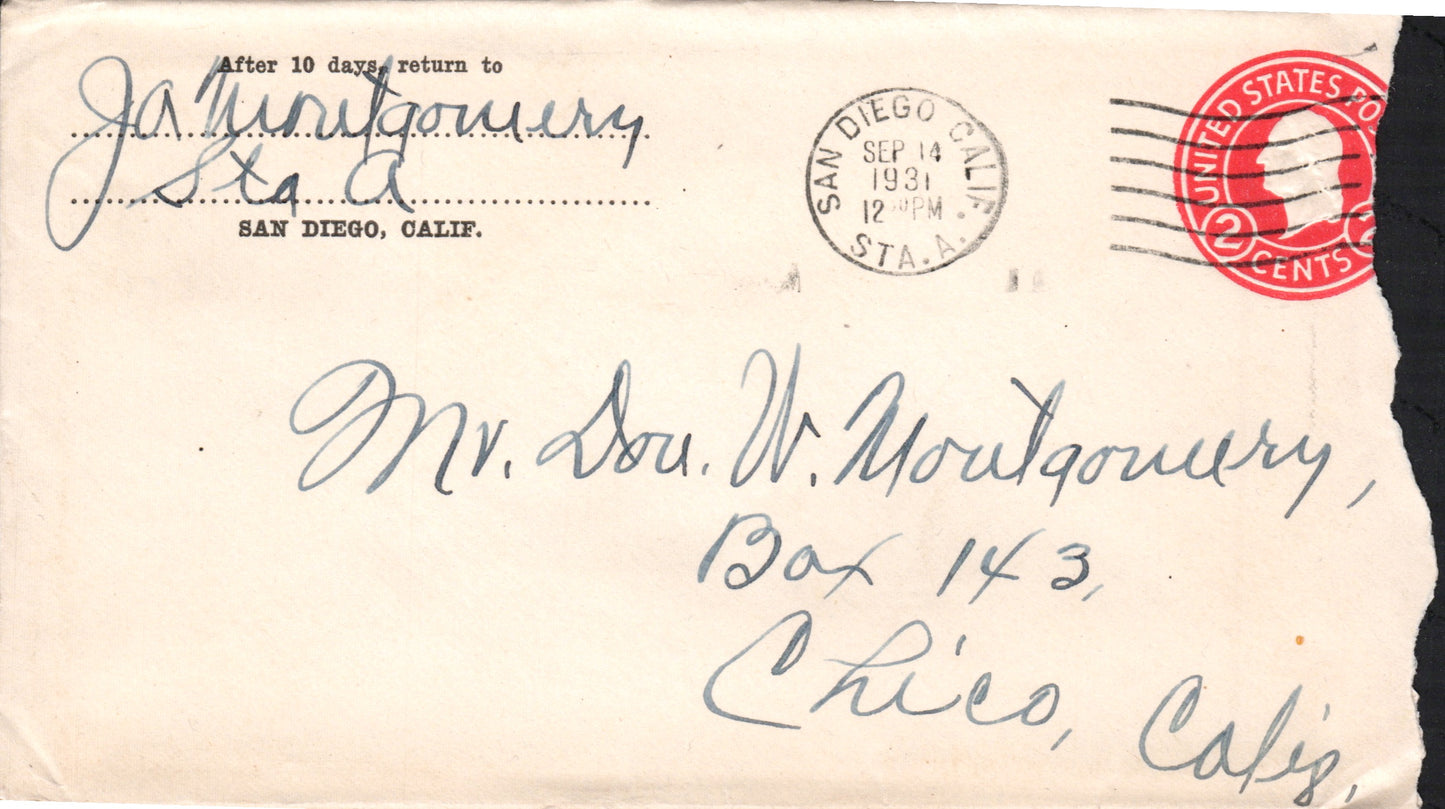 After 10 days, return to
JA Montgomery
Sta A
SAN DIEGO, CALIF.
SAN DIEGO CALIF.
SEP 14
1931
12 30 PM
STA. A.
UNITED STATES PO
2 CENTS 2
Mr. Don. W. Montgomery,
Box 143,
Chico, Calif.